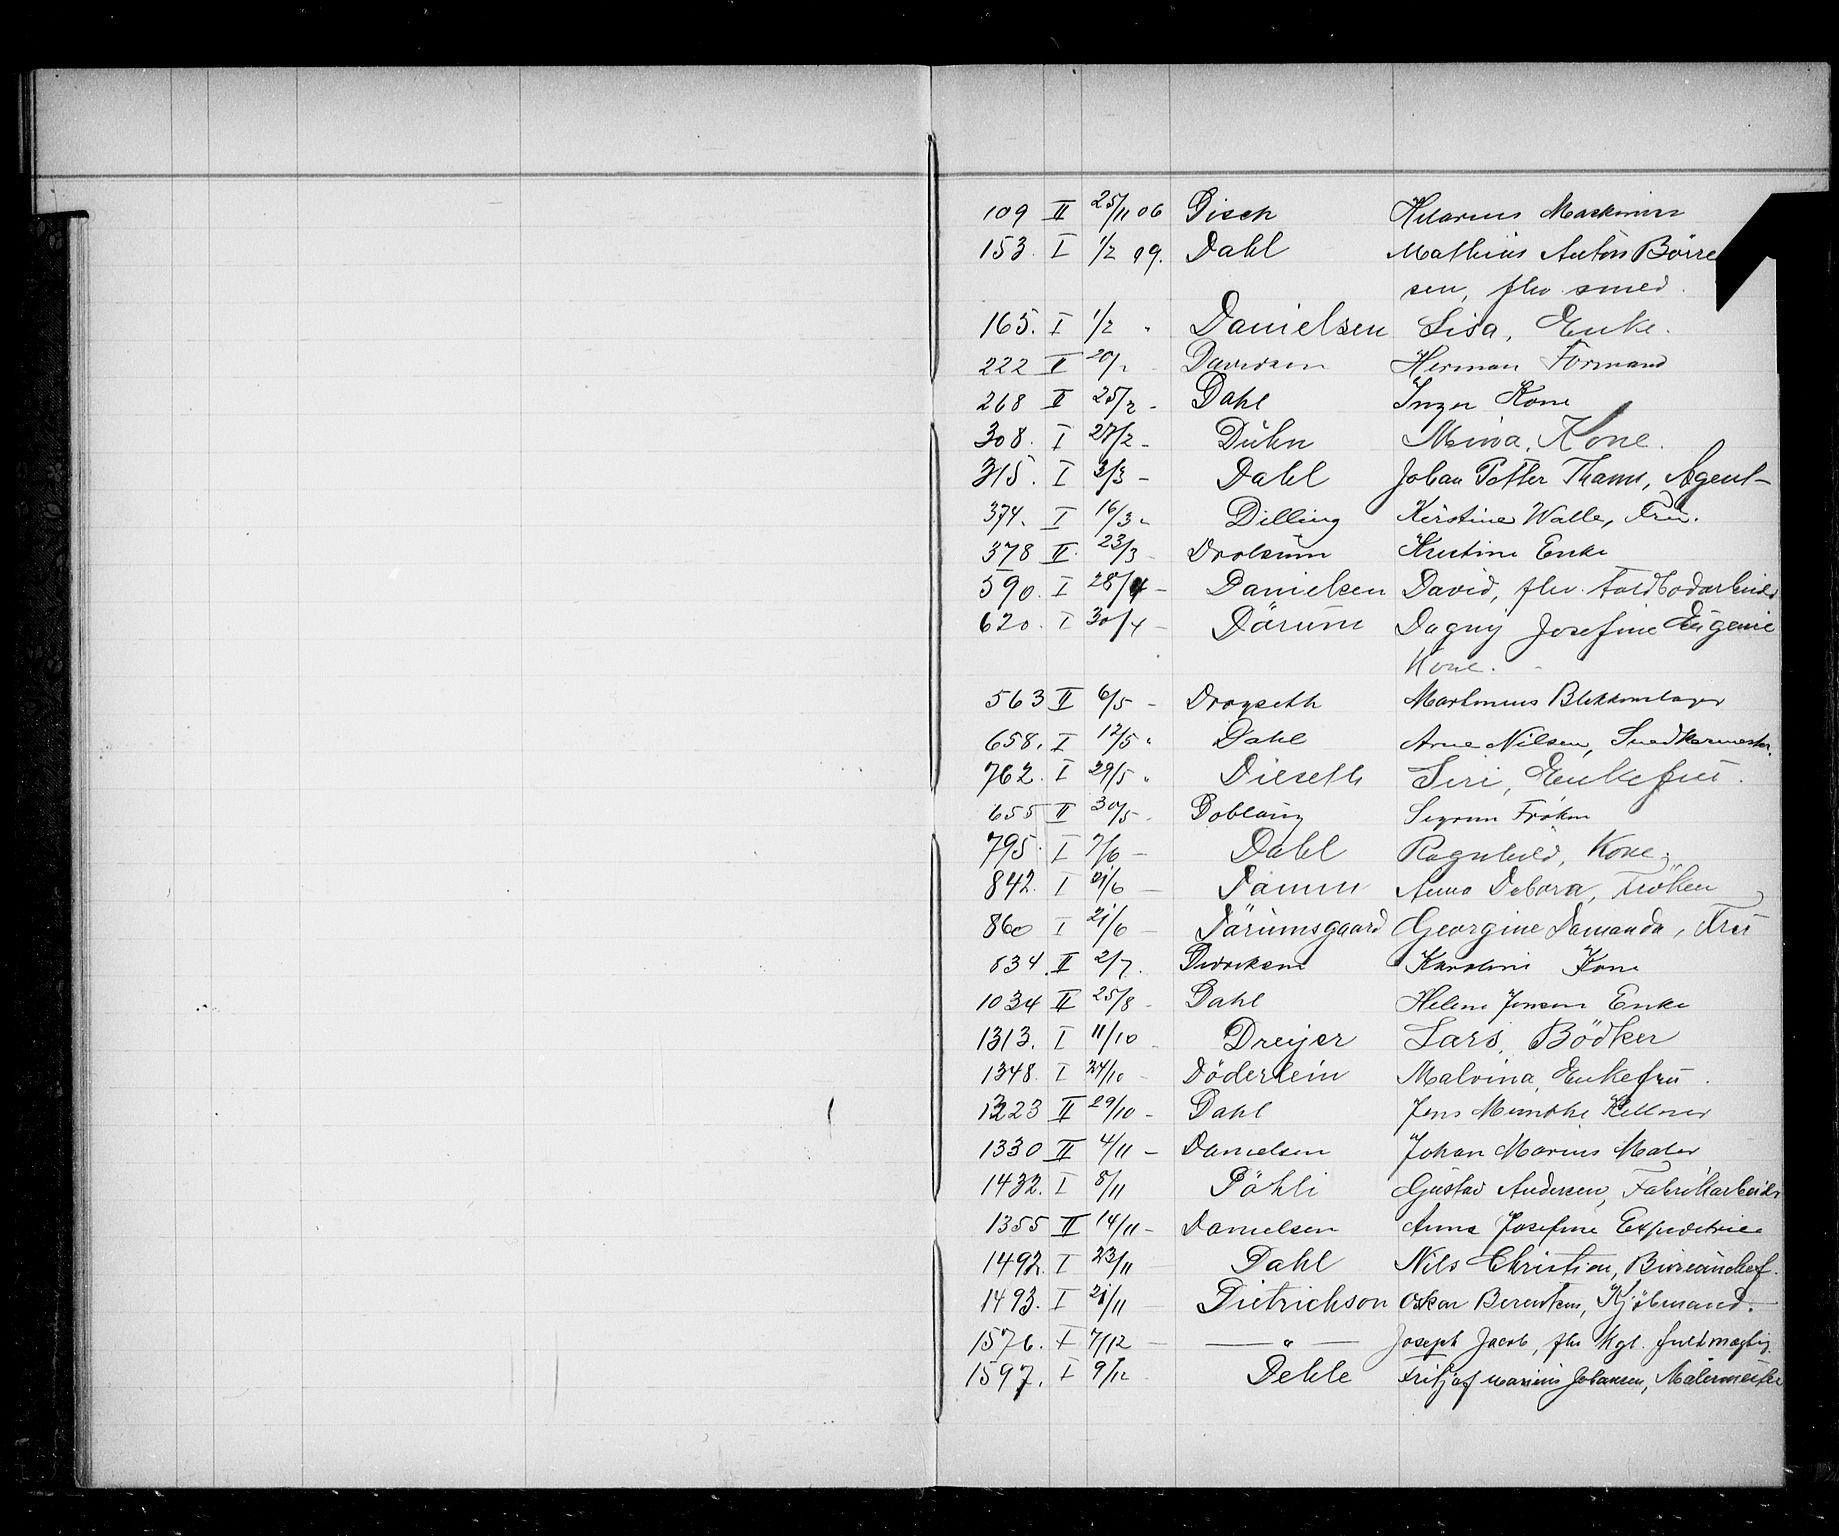 109 II 25/11 06 Disch Hilarius Maskinist
153. I 1/2 09. Dahl Mathius Anton Börre
sen, fhv. smed.
165. I 1/2 " Danielsen Lisa, Enke.
222 II 20/2 Davidsen Herman Formand
268 II 25/2 - Dahl Inger Kone
308. I 27/2 - Dühn Mina, Kone.
315. I 3/3 - Dahl Johan Potter Thams, Agent
374. I 16/3 " Dilling Kirstine Walle, Fru.
378 II 23/3 - Drolsum Kristine Enke
590. I 28/4 - Danielsen David, fhv. Toldbodarbeider
620. I 30/4 - Dörum Dagny Josefine Eugenie
Kone.
563 II 6/5 - Drogseth Martinius Blikkenslager
658. I 12/5 " Dahl Arne Nilsen, Snedkermester.
762. I 29/5 " Dieseth Siri, Enkefru.
655 II 30/5 - Doblaug Sigrun Frøken
795. I 7/6 - Dahl Ragnhild, Kone.
842. I 21/6 - Damm Anna Debora, Frøken
860 I 21/6 - Dörumsgaard Georgine Damanda, Fru
834. II 2/7. Didriksen Karoline Kone
1034 II 25/8 - Dahl Helene Jensen Enke
1313. I 11/10 - Dreyer Lars, Bödker
1348. I 24/10 - Döderlein Malvina, Enkefru.
1223 II 29/10 - Dahl Jens Münthe Kellner
1330 II 4/11 - Danielsen Johan Marius Maler
1432. I 8/11 Döhli Gustav Andersen, Fabrikarbeider
1355 II 14/11 - Danielsen Anna Josefine Expeditrice
1492. I 23/11 Dahl Nils Christian, Bureauchef.
1493. I 21/11 Dietrichson Oskar Berentsen, Kjöbmand.
1576. I 7/12 - — " — Joseph Jacob, fhv. Kgl. fuldmægtig.
1597. I 9/12 Dehle Fritjof Marinus Johansen, Malermester